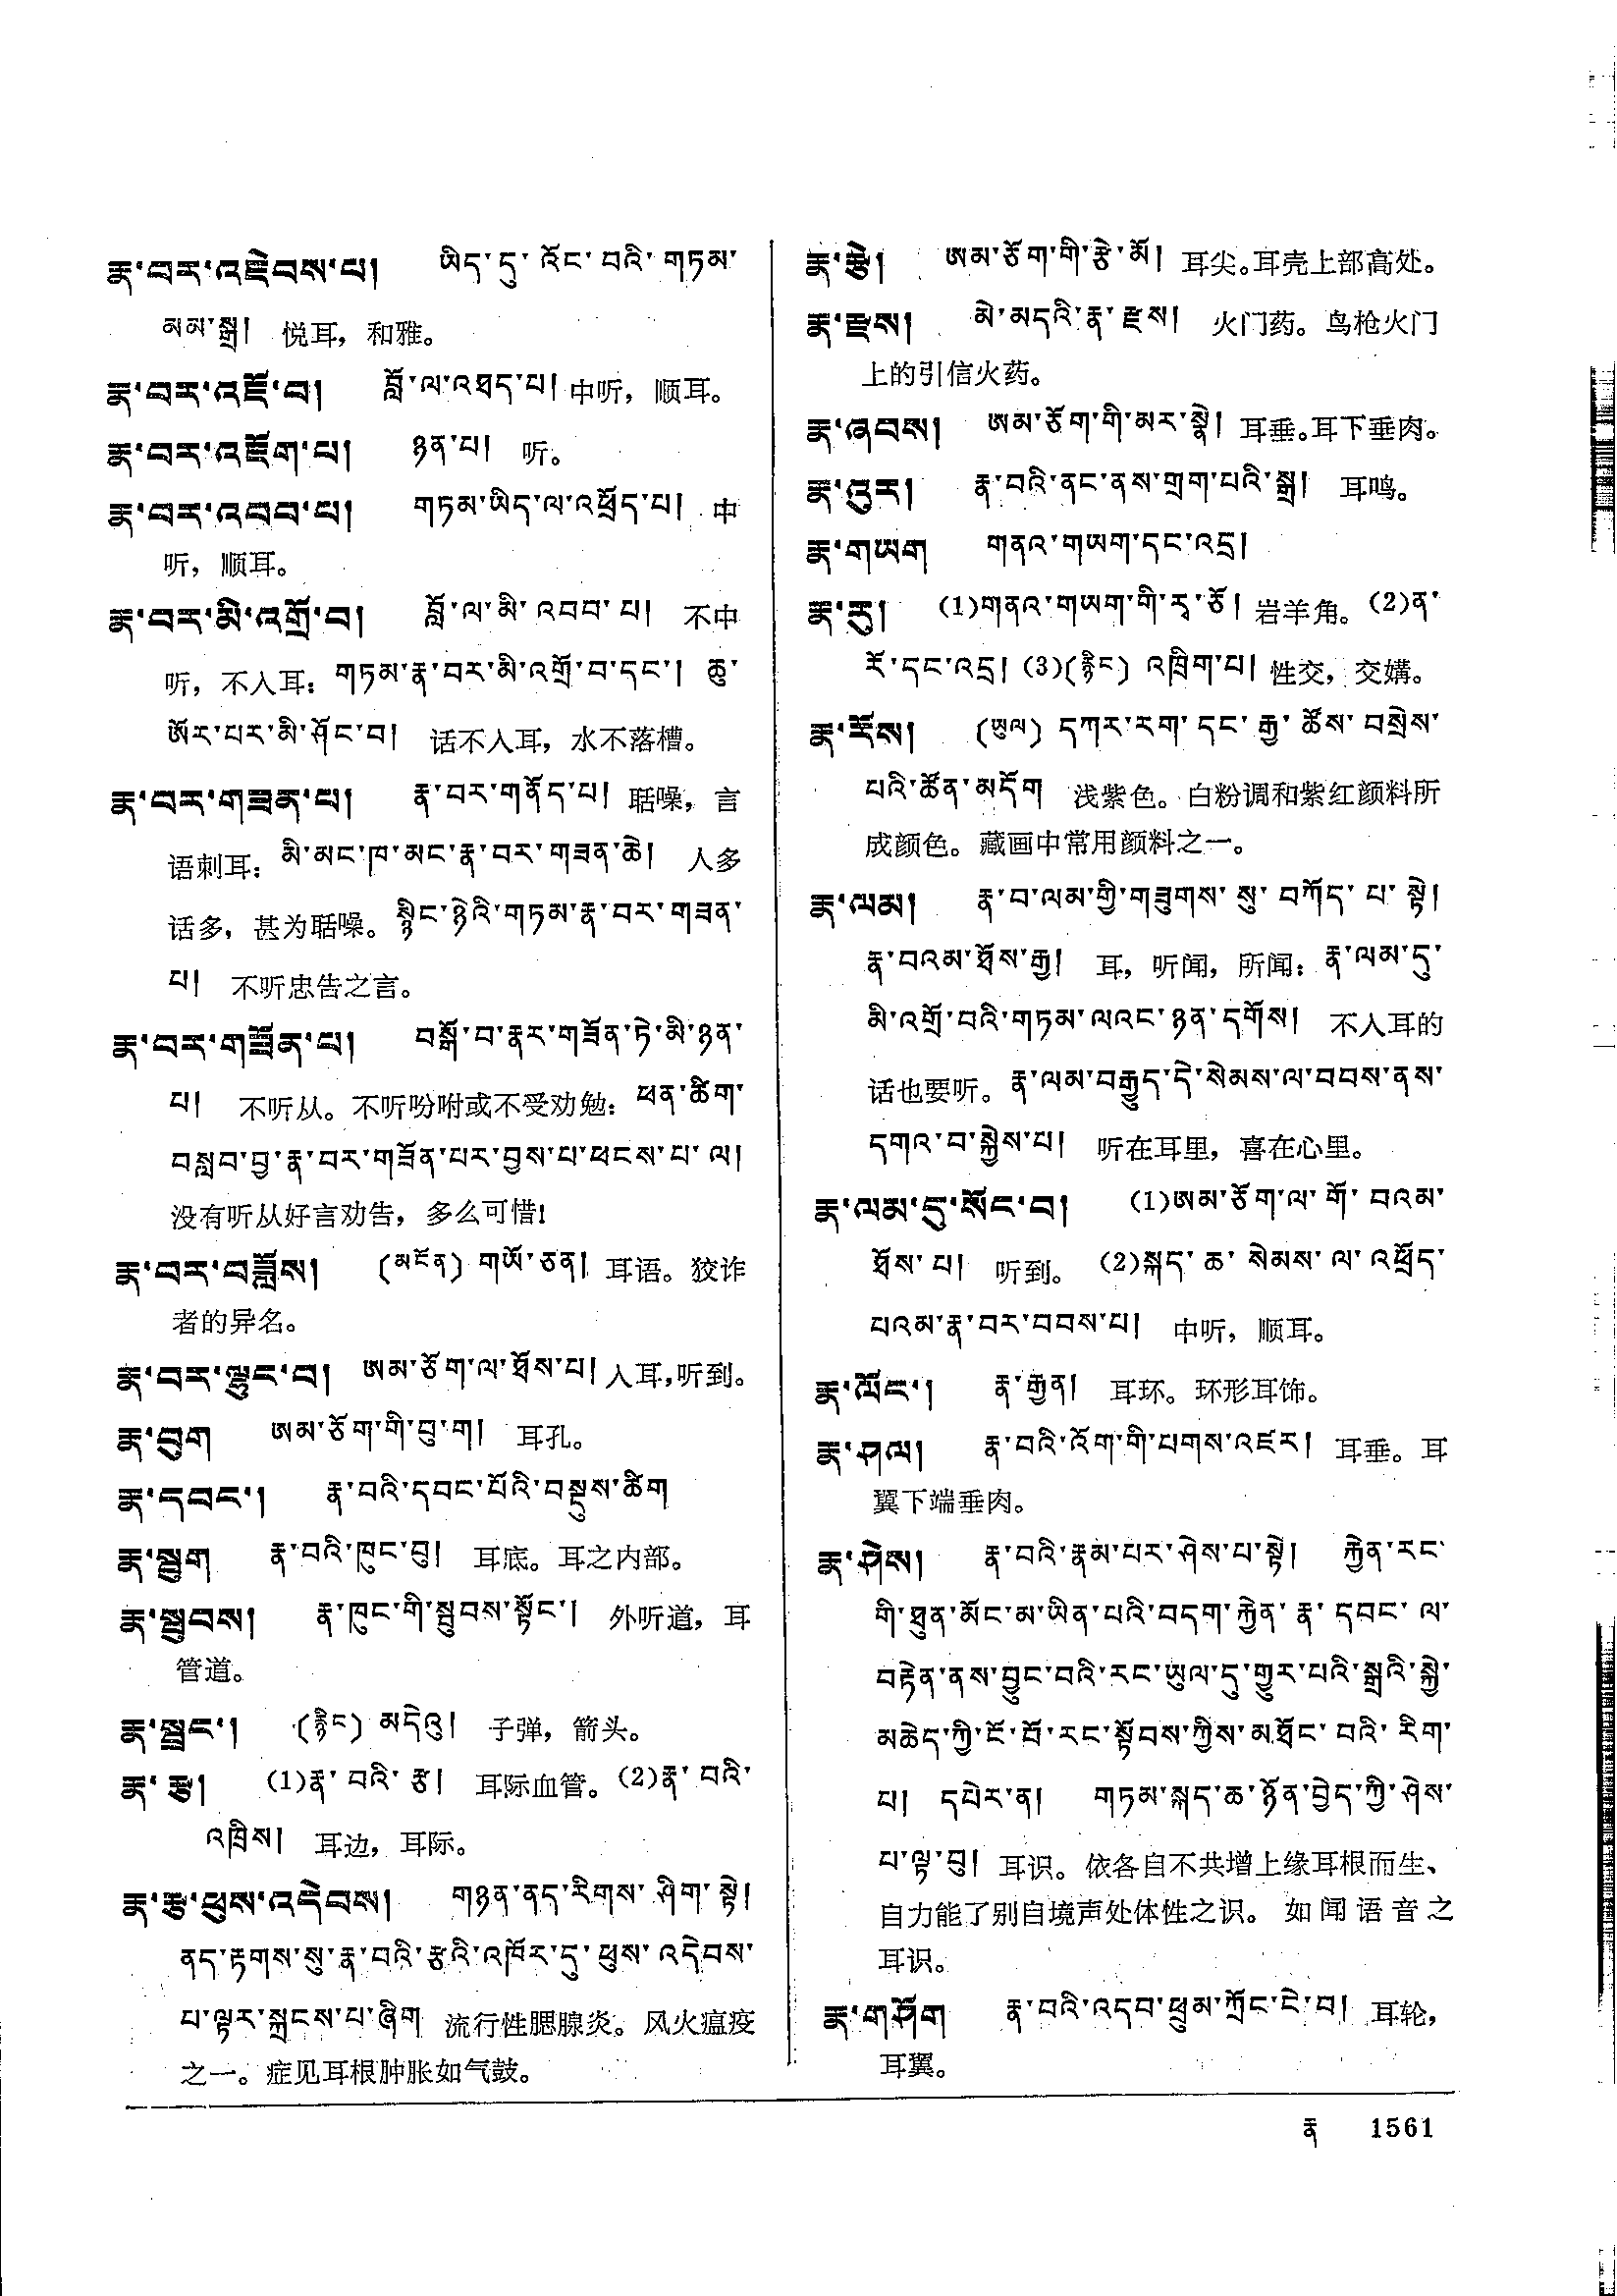 རྣ་བར་འཇེབས་པ། ཡིད་དུ་འོང་བའི་གཏམ་
མམ་སྒྲ། 悦耳，和雅。
རྣ་བར་འཇོ་བ། བློ་ལ་འཐད་པ། 中听，顺耳。
རྣ་བར་འཇོག་པ། ཉན་པ། 听。
རྣ་བར་འབབ་པ། གཏམ་ཡིད་ལ་འཕྲོད་པ། 中
听，顺耳。
རྣ་བར་མི་འགྲོ་བ། བློ་ལ་མི་འབབ་པ། 不中
听，不入耳：གཏམ་རྣ་བར་མི་འགྲོ་བ་དང་། ཆུ་
ཨོར་པར་མི་ཤོང་བ། 话不入耳，水不落槽。
རྣ་བར་གཟན་པ། རྣ་བར་གནོད་པ། 聒噪，言
语刺耳：མི་མང་ཁ་མང་རྣ་བར་གཟན་ཆེ། 人多
话多，甚为聒噪。སྙིང་ཉེའི་གཏམ་རྣ་བར་གཟན་
པ། 不听忠告之言。
རྣ་བར་གཟོན་པ། བསྒོ་བ་རྣར་གཟོན་ཏེ་མི་ཉན་
པ། 不听从。不听吩咐或不受劝勉：ཕན་ཚིག་
བསླབ་བྱ་རྣ་བར་གཟོན་པར་བྱས་པ་ཕངས་པ་ལ།
没有听从好言劝告，多么可惜！
རྣ་བར་བཟློས། (མངོན) གཡོ་ཅན། 耳语。狡诈
者的异名。
རྣ་བར་ལྷུང་བ། ཨམ་ཅོག་ལ་ཐོས་པ། 入耳，听到。
རྣ་བུག ཨམ་ཅོག་གི་བུ་ག། 耳孔。
རྣ་དབང་། རྣ་བའི་དབང་པོའི་བསྡུས་ཚིག
རྣ་སྦུག རྣ་བའི་ཁུང་བུ། 耳底。耳之内部。
རྣ་སྦུབས། རྣ་ཁུང་གི་སྦུབས་སྟོང་། 外听道，耳
管道。
རྣ་སྦྲང་། (རྙིང) མདེའུ། 子弹，箭头。
རྣ་རྩ། (1)རྣ་བའི་རྩ། 耳际血管。(2)རྣ་བའི་
འཁྲིས། 耳边，耳际。
རྣ་རྩ་ཕུས་འདེབས། གཉན་ནད་རིགས་ཤིག་སྟེ།
ནད་རྟགས་སུ་རྣ་བའི་རྩའི་འཁོར་དུ་ཕུས་འདེབས་
པ་ལྟར་སྐྲངས་པ་ཞིག 流行性腮腺炎。风火瘟疫
之一。症见耳根肿胀如气鼓。
རྣ་རྩེ། ཨམ་ཅོག་གི་རྩེ་མོ། 耳尖。耳壳上部高处。
རྣ་རྫས། མེ་མདའི་རྣ་རྫས། 火门药。鸟枪火门
上的引信火药。
རྣ་ཞབས། ཨམ་ཅོག་གི་མར་སྣེ། 耳垂。耳下垂肉。
རྣ་འུར། རྣ་བའི་ནང་ནས་གྲག་པའི་སྒྲ། 耳鸣。
རྣ་གཡག གནའ་གཡག་དང་འདྲ།
རྣ་རུ། (1)གནའ་གཡག་གི་རྭ་ཅོ། 岩羊角。(2)ན་
རོ་དང་འདྲ། (3)(རྙིང) འཁྲིག་པ། 性交，交媾。
རྣ་རོས། (ཡུལ) དཀར་རག་དང་རྒྱ་ཚོས་བསྲེས་
པའི་ཚོན་མདོག 浅紫色。白粉调和紫红颜料所
成颜色。藏画中常用颜料之一。
རྣ་ལམ། རྣ་བ་ལམ་གྱི་གཟུགས་སུ་བཀོད་པ་སྟེ།
རྣ་བའམ་ཐོས་རྒྱ། 耳，听闻，所闻：རྣ་ལམ་དུ་
མི་འགྲོ་བའི་གཏམ་ལའང་ཉན་དགོས། 不入耳的
话也要听。རྣ་ལམ་བརྒྱུད་དེ་སེམས་ལ་བབས་ནས་
དགའ་བ་སྐྱེས་པ། 听在耳里，喜在心里。
རྣ་ལམ་དུ་སོང་བ། (1)ཨམ་ཅོག་ལ་གོ་བའམ་
ཐོས་པ། 听到。(2)སྐད་ཆ་སེམས་ལ་འཕྲོད་
པའམ་རྣ་བར་བབས་པ། 中听，顺耳。
རྣ་ལོང་། རྣ་རྒྱན། 耳环。环形耳饰。
རྣ་ཤལ། རྣ་བའི་འོག་གི་པགས་འཛར། 耳垂。耳
翼下端垂肉。
རྣ་ཤེས། རྣ་བའི་རྣམ་པར་ཤེས་པ་སྟེ། རྐྱེན་རང་
གི་ཐུན་མོང་མ་ཡིན་པའི་བདག་རྐྱེན་རྣ་དབང་ལ་
བརྟེན་ནས་བྱུང་བའི་རང་ཡུལ་དུ་གྱུར་པའི་སྒྲའི་སྐྱེ་
མཆེད་ཀྱི་ངོ་བོ་རང་སྟོབས་ཀྱིས་མཐོང་བའི་རིག་
པ། དཔེར་ན། གཏམ་སྐད་ཆ་ཉོན་བྱེད་ཀྱི་ཤེས་
པ་ལྟ་བུ། 耳识。依各自不共增上缘耳根而生、
自力能了别自境声处体性之识。如闻语音之
耳识。
རྣ་གཤོག རྣ་བའི་འདབ་ཕྲུམ་ཀྲོང་ངེ་བ། 耳轮，
耳翼。
རྣ 1561